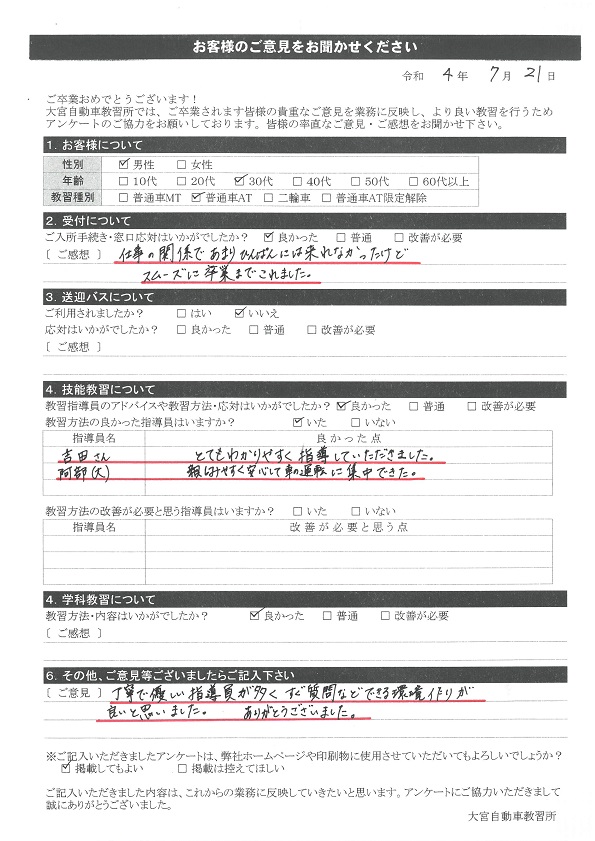 お客様のご意見をお聞かせください
令和 4 年 7 月 21 日
ご卒業おめでとうございます!
大宮自動車教習所では、ご卒業されます皆様の貴重なご意見を業務に反映し、より良い教習を行うため
アンケートのご協力をお願いしております。皆様の率直なご意見・ご感想をお聞かせ下さい。
1. お客様について
性別 ☑男性 □女性
年齢 □10代 □20代 ☑30代 □40代 □50代 □60代以上
教習種別 □普通車MT ☑普通車AT □二輪車 □普通車AT限定解除
2. 受付について
ご入所手続き・窓口応対はいかがでしたか? ☑良かった □普通 □改善が必要
[ ご感想 ] 仕事の関係であまりひんぱんには来れなかったけど
スムーズに卒業までこれました。
3. 送迎バスについて
ご利用されましたか? □はい ☑いいえ
応対はいかがでしたか? □良かった □普通 □改善が必要
[ ご感想 ]
4. 技能教習について
教習指導員のアドバイスや教習方法・応対はいかがでしたか? ☑良かった □普通 □改善が必要
教習方法の良かった指導員はいますか? ☑いた □いない
指導員名 良かった点
吉田さん とてもわかりやすく指導していただきました。
阿部(大) 親しみやすく安心して車の運転に集中できた。
教習方法の改善が必要と思う指導員はいますか? □いた □いない
指導員名 改善が必要と思う点
4. 学科教習について
教習方法・内容はいかがでしたか? ☑良かった □普通 □改善が必要
[ ご感想 ]
6. その他、ご意見等ございましたらご記入下さい
[ ご意見 ] 丁寧で優しい指導員が多く すぐ質問などできる環境作りが
良いと思いました。 ありがとうございました。
※ご記入いただきましたアンケートは、弊社ホームページや印刷物に使用させていただいてもよろしいでしょうか?
☑掲載してもよい □掲載は控えてほしい
ご記入いただきました内容は、これからの業務に反映していきたいと思います。アンケートにご協力いただきまして
誠にありがとうございました。
大宮自動車教習所